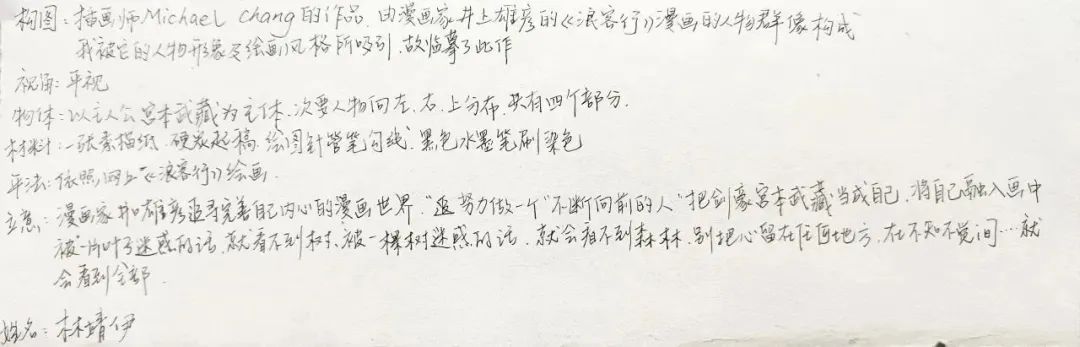 构图：插画师Michael Chang的作品，由漫画家井上雄彦的《浪客行》漫画的人物群像构成
我被它的人物形象及绘画风格所吸引，故临摹了此作
视角：平视
物体：以主人公宫本武藏为主体，次要人物向左、右、上分布，共有四个部分.
材料：一张素描纸，硬炭起稿，绘图针管笔勾线，黑色水墨笔刷染色
手法：依照网上《浪客行》绘画.
立意：漫画家井上雄彦追寻完善自己内心的漫画世界，“努力做一个“不断向前的人”把剑豪宫本武藏当成自己，将自己融入画中
被一片叶子迷惑的话，就看不到树，被一棵树迷惑的话，就会看不到森林，别把心留在任何地方，在不知不觉间……就
会看到全部.
姓名：林靖伊